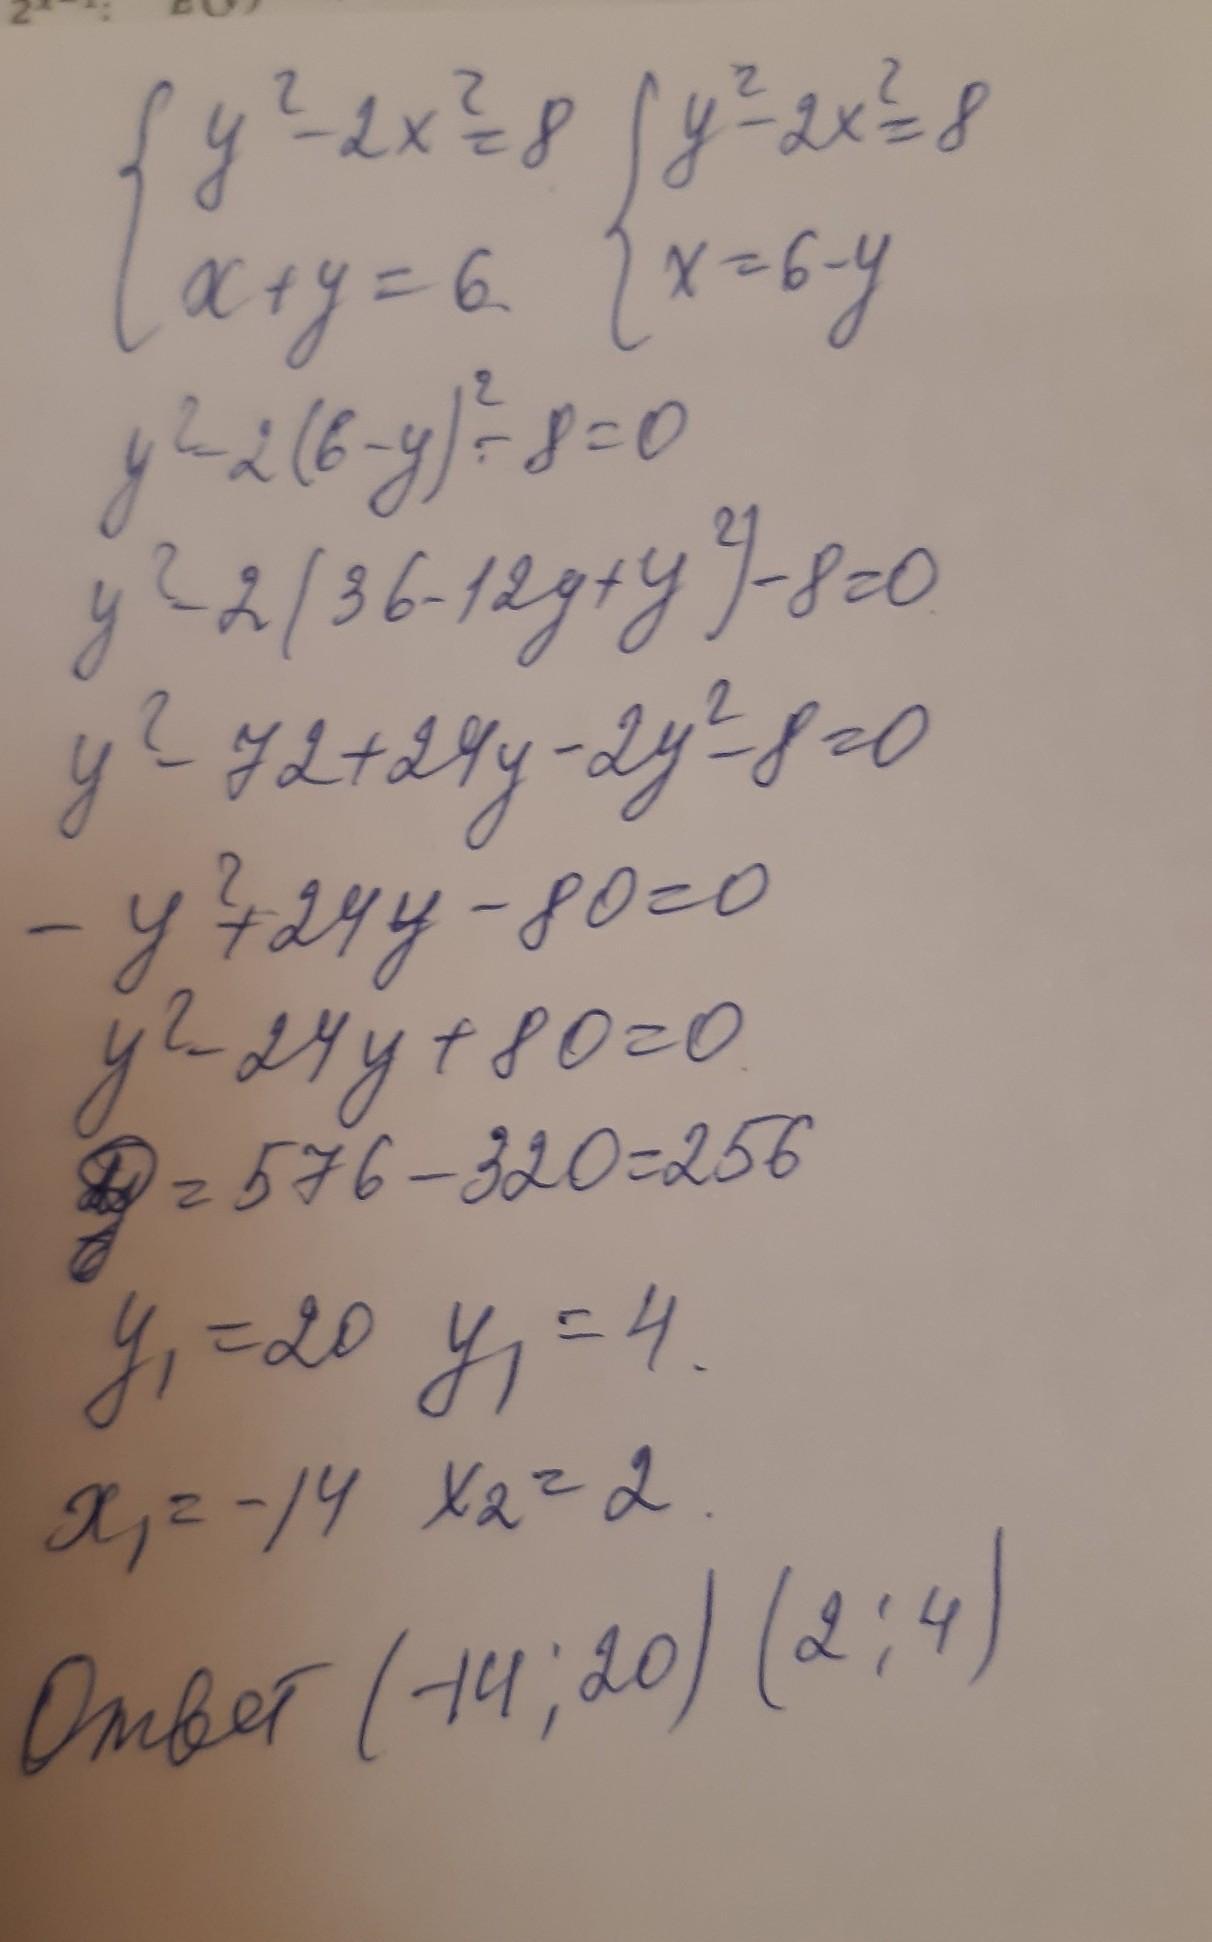 { y² - 2x² = 8 { y² - 2x² = 8
x + y = 6 x = 6 - y
y² - 2(6 - y)² - 8 = 0
y² - 2(36 - 12y + y²) - 8 = 0
y² - 72 + 24y - 2y² - 8 = 0
- y² + 24y - 80 = 0
y² - 24y + 80 = 0
= 576 - 320 = 256
y₁ = 20 y₁ = 4.
x₁ = -14 x₂ = 2.
Ответ (-14; 20) (2; 4)